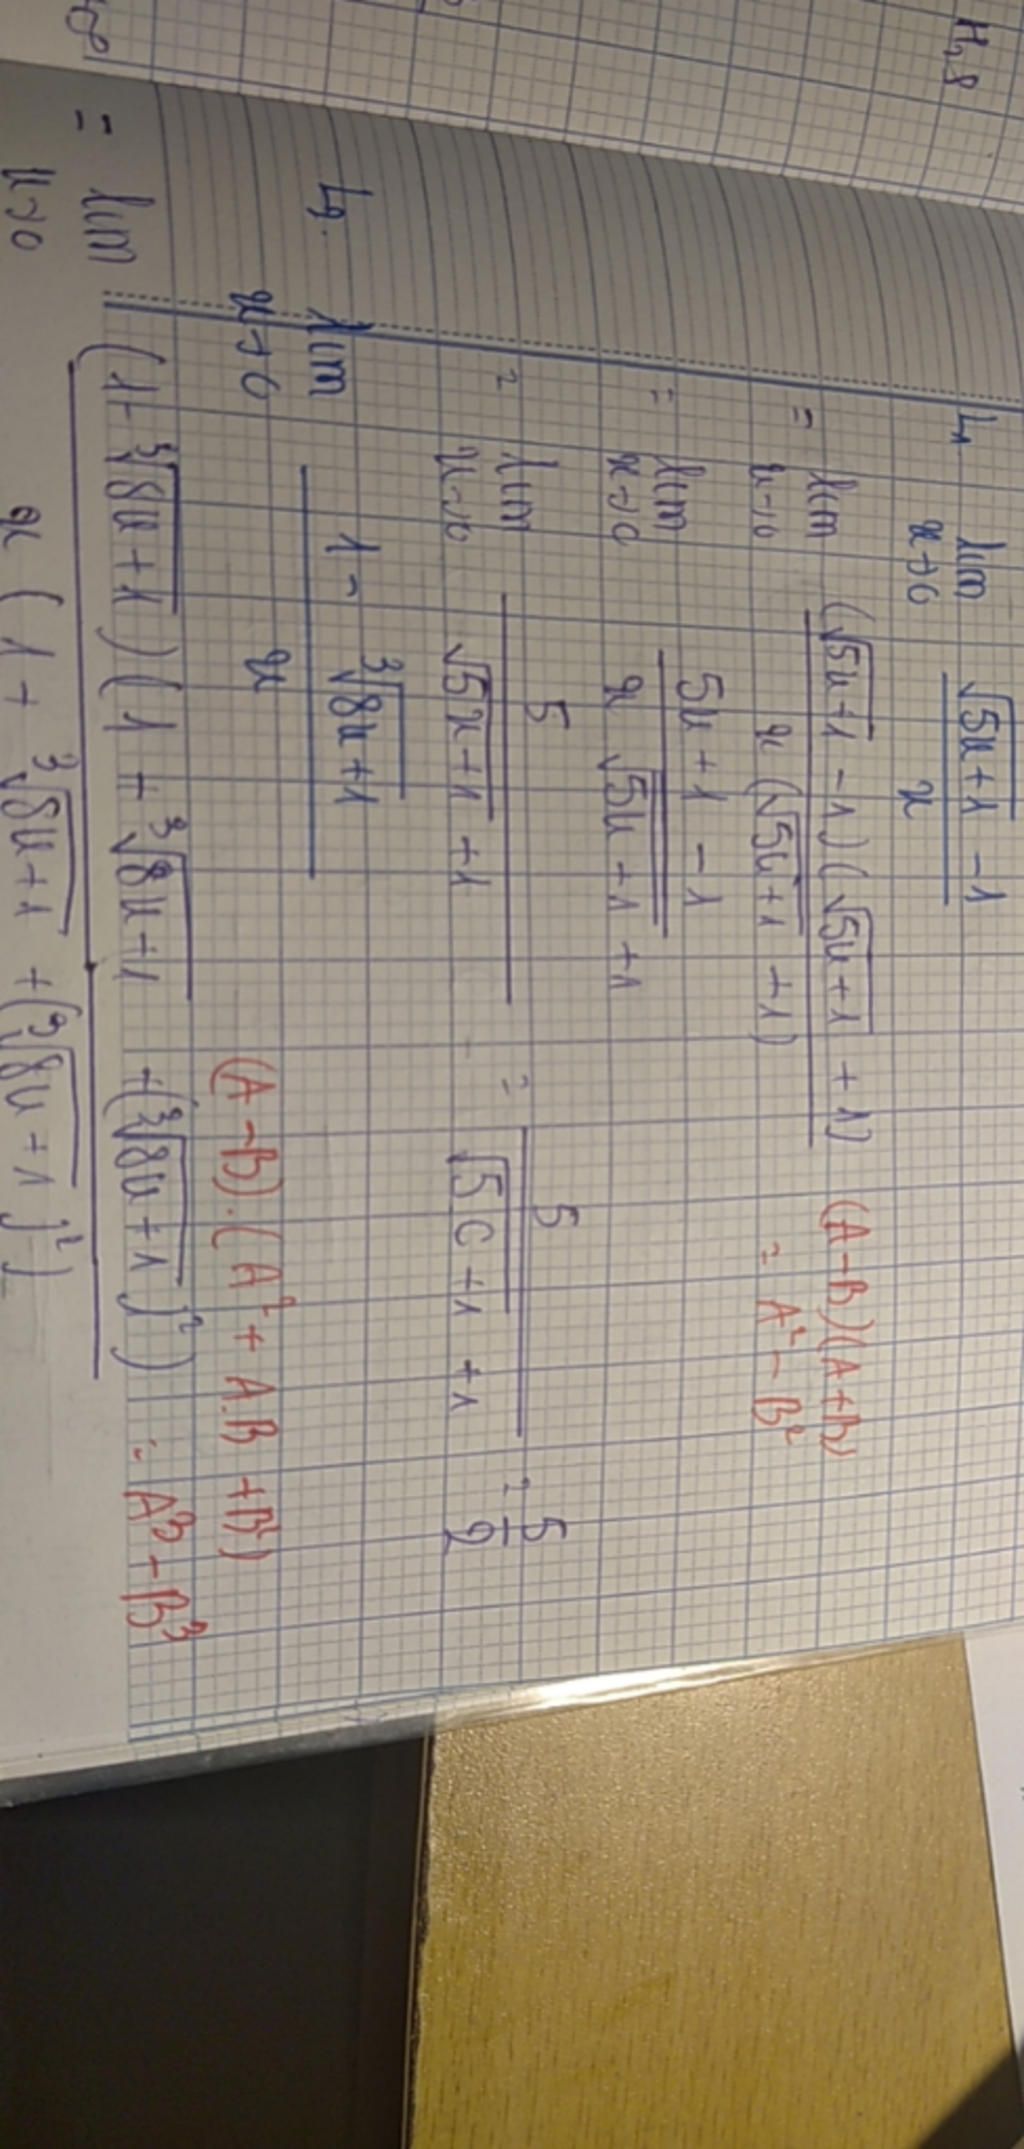 H₂S
L₁ lim x→0 (√(5x+1) -1)/x
= lim x→0 ((√(5x+1) -1)(√(5x+1) +1))/(x(√(5x+1) +1)) (A-B)(A+B) = A² - B²
= lim x→0 (5x+1 -1)/(x √(5x+1) +1)
= lim x→0 5/(√(5x+1) +1) = 5/(√(5·0+1) +1) = 5/2
L₂. lim x→0 (1 - ∛(8x+1))/x
(A-B).(A² + A.B + B²) = A³ - B³
= lim x→0 ((1-∛(8x+1))(1 + ∛(8x+1) + (∛(8x+1))²))/(x(1 + ∛(8x+1) + (∛(8x+1))²))